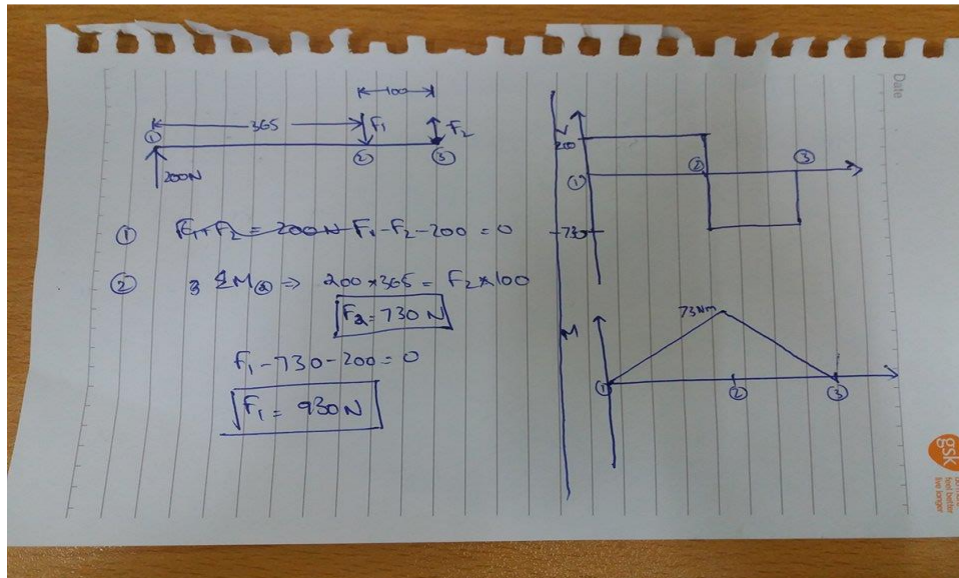 Date
100
365
F₁
F₂
①
②
③
200N
① F₁+F₂ = 200N F₁-F₂-200=0
② ΣM② ⇒ 200×365 = F₂×100
F₂=730 N
F₁-730-200=0
F₁ = 930N
V
200
①
②
③
-730
M
73Nm
①
②
③
gsk
do more
feel better
live longer